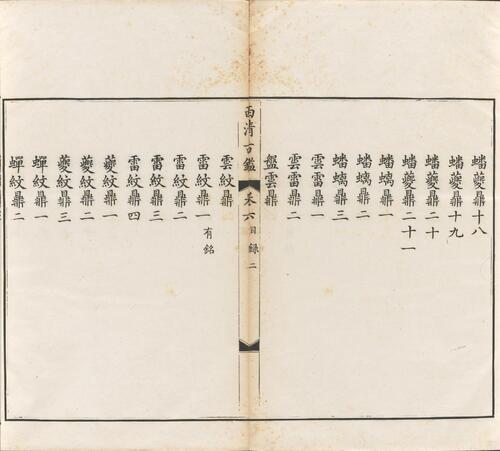 蟠夔鼎十八
蟠夔鼎十九
蟠夔鼎二十
蟠夔鼎二十一
蟠螭鼎一
蟠螭鼎二
蟠螭鼎三
雲雷鼎一
雲雷鼎二
盤雲鼎
西清古鑑 卷六目錄 二
雲紋鼎
雷紋鼎一 有銘
雷紋鼎二
雷紋鼎三
雷紋鼎四
夔紋鼎一
夔紋鼎二
夔紋鼎三
蟬紋鼎一
蟬紋鼎二